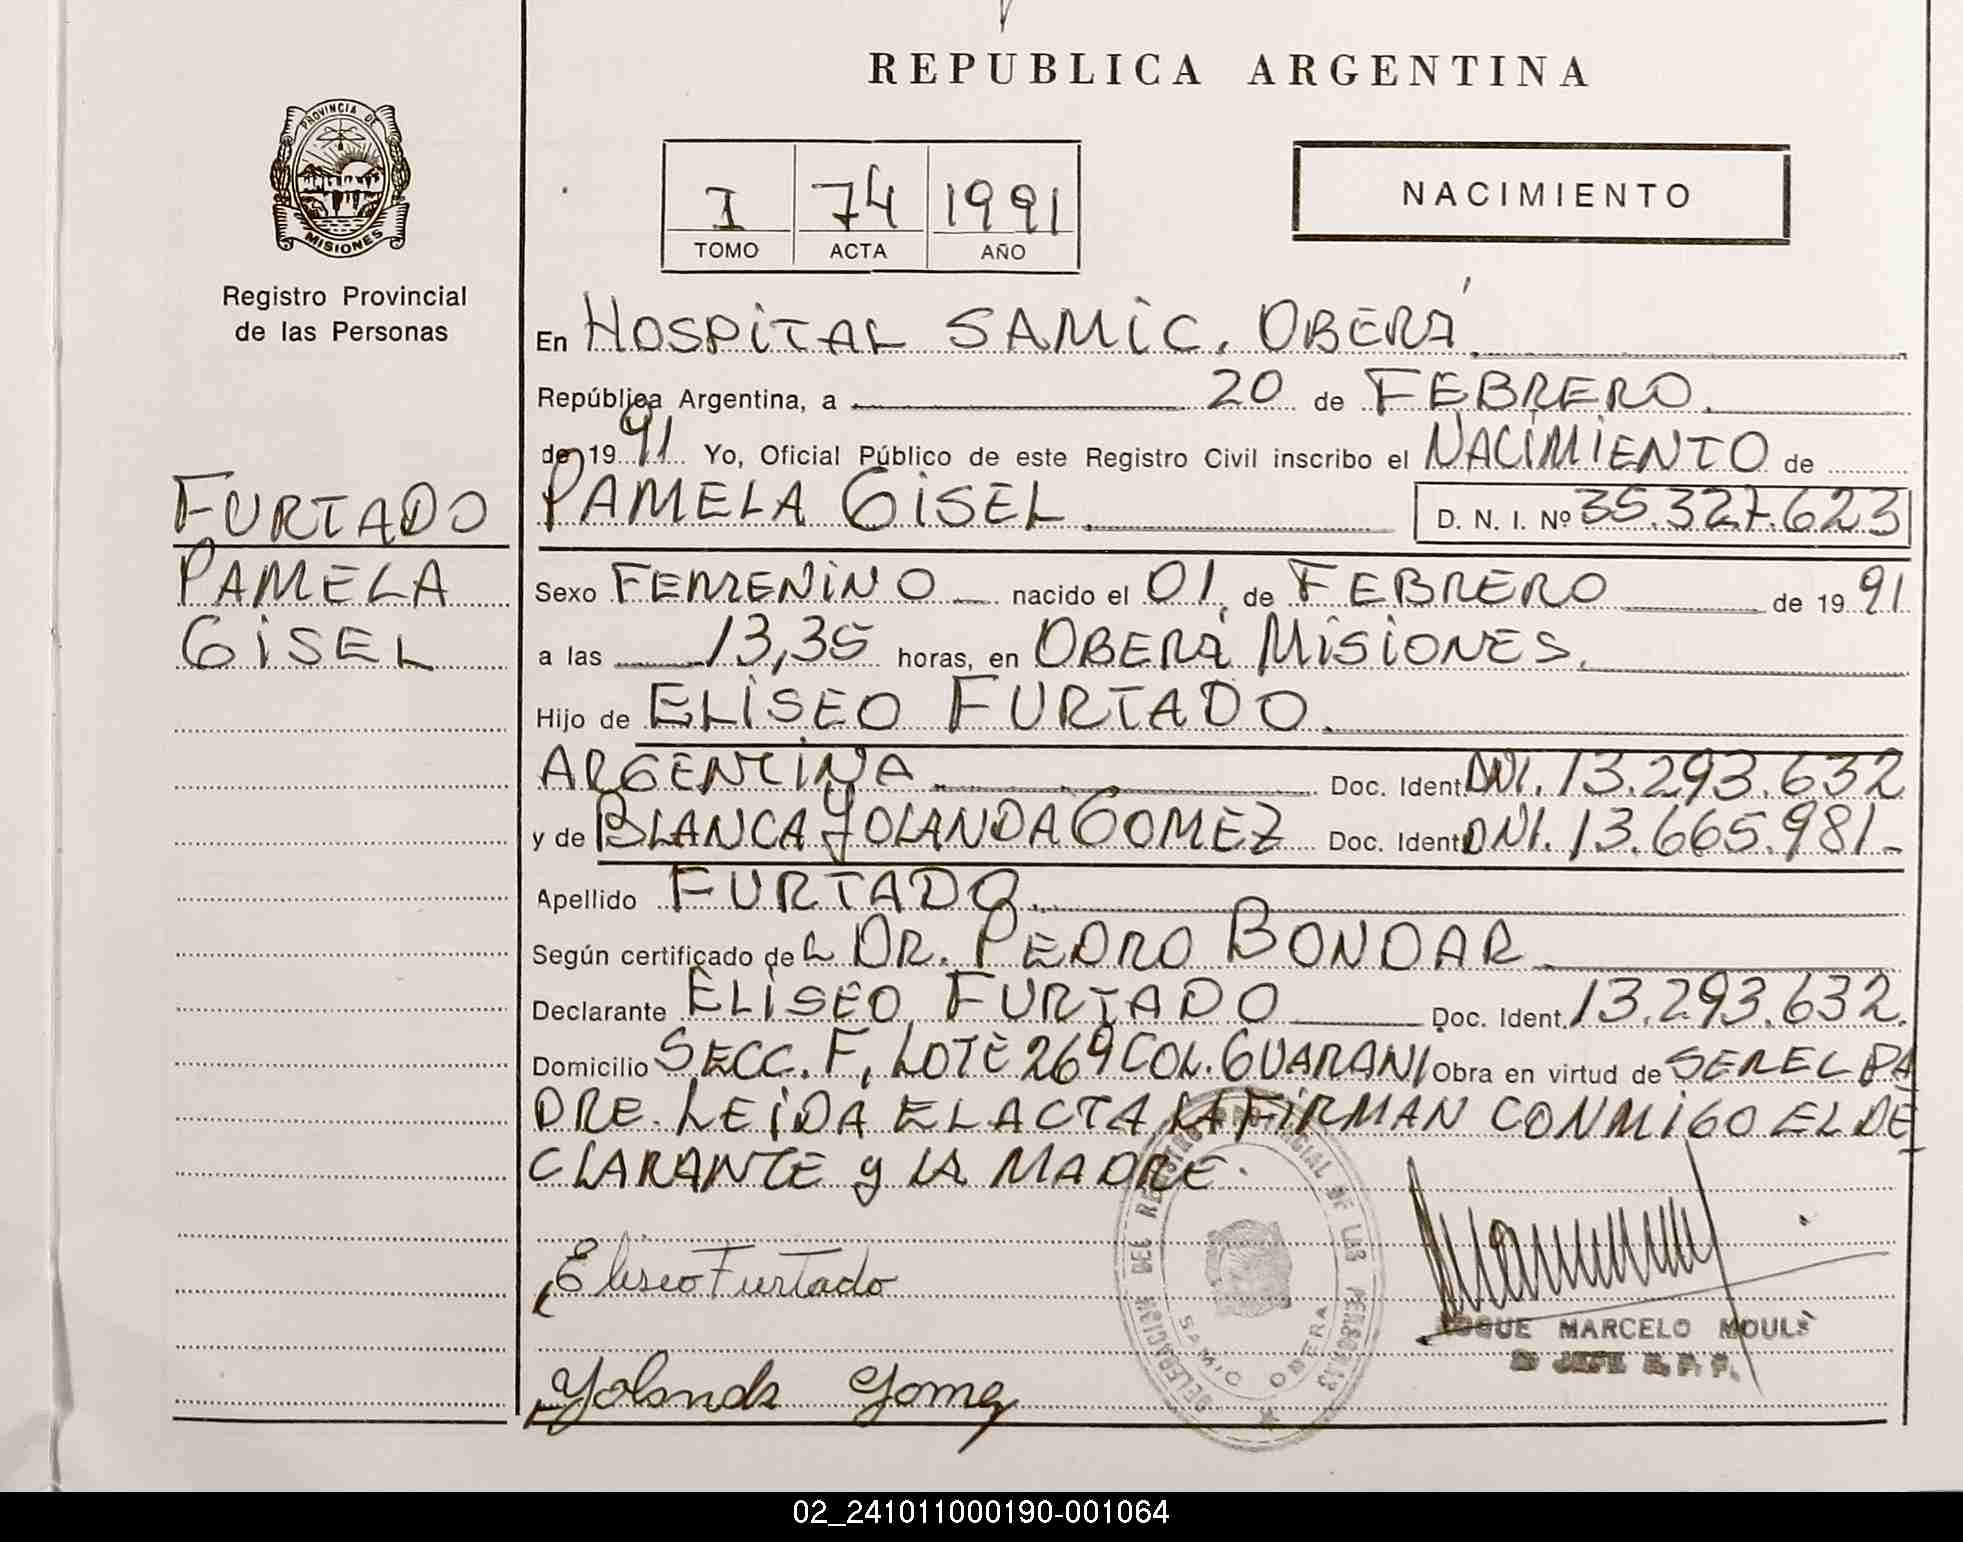 REPUBLICA ARGENTINA
PROVINCIA DE
MISIONES
Registro Provincial
de las Personas
I 74 1991
TOMO ACTA AÑO
NACIMIENTO
En HOSPITAL SAMIC. OBERÁ
República Argentina, a 20 de FEBRERO.
de 1991 Yo, Oficial Público de este Registro Civil inscribo el NACIMIENTO de
PAMELA GISEL D. N. I. Nº 35.327.623
FURTADO
PAMELA
GISEL
Sexo FEMENINO nacido el 01 de FEBRERO de 1991
a las 13,35 horas, en OBERÁ MISIONES.
Hijo de ELISEO FURTADO
ARGENTINA Doc. Ident. DNI. 13.293.632
y de BLANCA YOLANDA GOMEZ Doc. Ident. DNI. 13.665.981-
Apellido FURTADO.
Según certificado del DR. PEDRO BONDAR
Declarante ELISEO FURTADO Doc. Ident. 13.293.632.
Domicilio SECC. F, LOTE 269 COL. GUARANI Obra en virtud de SER EL PA
DRE. LEIDA EL ACTA LA FIRMAN CONMIGO EL DE
CLARANTE y LA MADRE.
Eliseo Furtado
Yolanda Gomez
DELEGACION DEL REGISTRO PROVINCIAL DE LAS PERSONAS
SAMIC OBERA
ROQUE MARCELO MOULS
JEFE R. P. P.
02_241011000190-001064